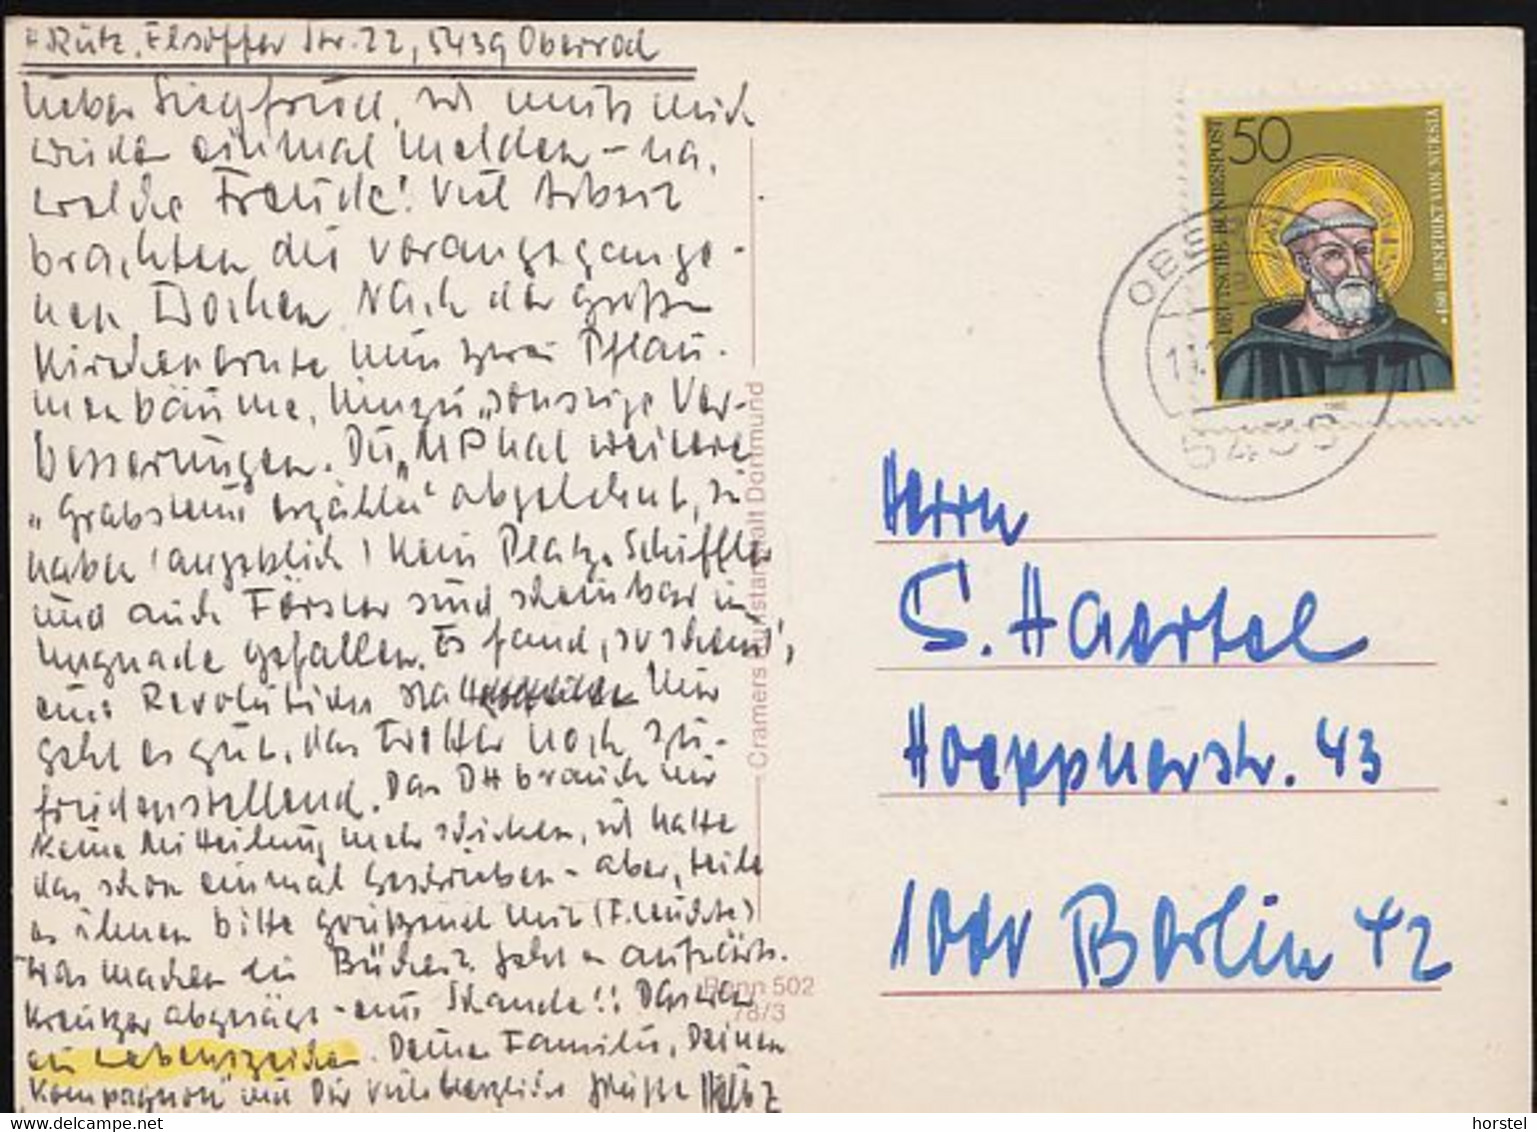 Rütz, Elsoffer Str. 22, 5439 Oberrod
Lieber Siegfried, ich muß mich
wieder einmal melden – na,
welche Freude! Viel Arbeit
brachten die vorangegange-
nen Wochen. Nach der großen
Kirschenernte nun zwei Pflau-
menbäume, hinzu „sonstige Ver-
besserungen. Die „MP hat weitere
„Grabsteine erzählen" abgelehnt, sie
haben (angeblich) kein Platz. Schiffler
und auch Förster sind scheinbar in
Ungnade gefallen. Es fand, so scheint's,
eine Revolution statt. Mir
geht es gut, das Wetter noch zu-
friedenstellend. Das DH brauch mir
keine Mitteilung mehr schicken, ich hatte
das schon einmal geschrieben – aber, teile
es ihnen bitte grützend mit (F. Leuchte)
Was machen die Bücher? Geht es aufwärts.
Kreutzer abgesägt – eine Schande!! Das war
ein Lebenszeichen. Deiner Familie, Deinen
„Kompagnon" und Dir viele herzliche Grüße
Cramers Kunstanstalt Dortmund
Bonn 502
78/3
DEUTSCHE BUNDESPOST
50
480: BENEDIKT VON NURSIA
OBER
5439
Herrn
S. Haertel
Hoeppnerstr. 43
1000 Berlin 42
www.delcampe.net
horstel